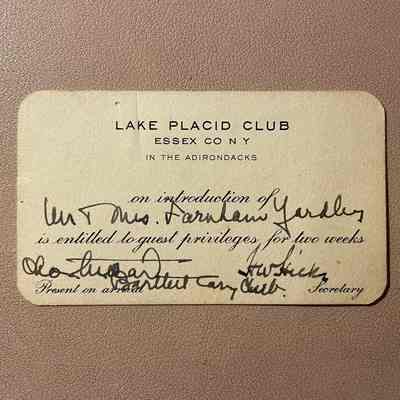 LAKE PLACID CLUB
ESSEX CO N Y
IN THE ADIRONDACKS
on introduction of
Mr & Mrs. Farnham Yardley
is entitled to guest privileges for two weeks
Bartlett Carry Club.
Present on arrival Secretary